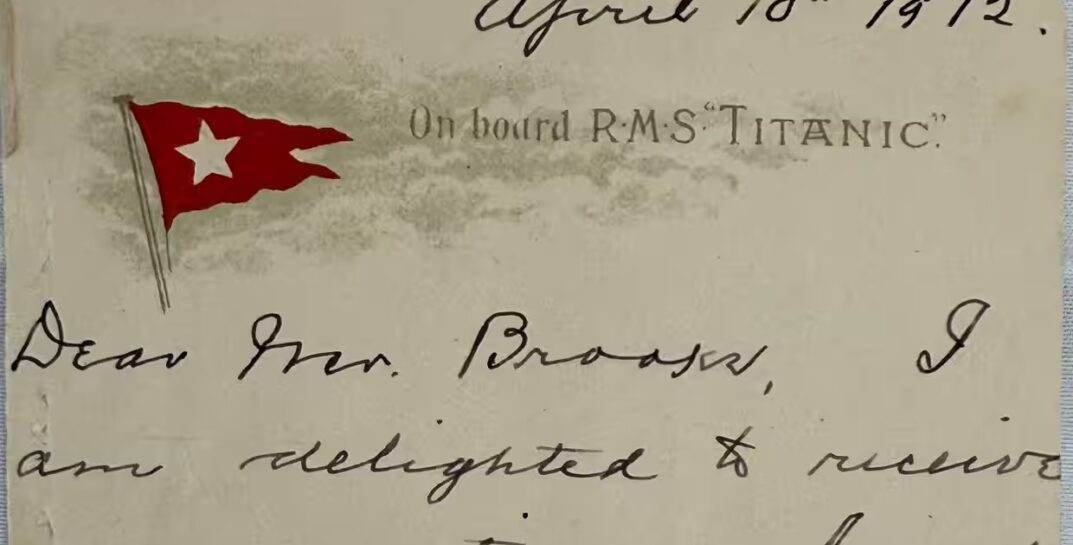 April 10th 1912.
On board R·M·S·"TITANIC".
Dear Mr. Brooks, I
am delighted to receive